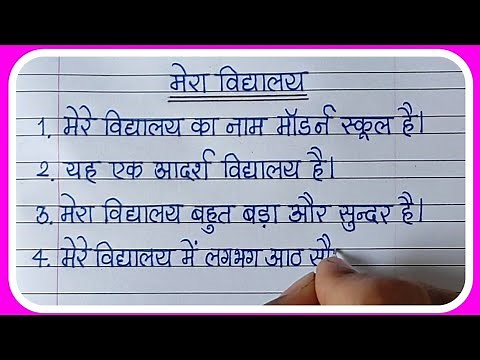 मेरा विद्यालय
1. मेरे विद्यालय का नाम मॉडर्न स्कूल है।
2. यह एक आदर्श विद्यालय है।
3. मेरा विद्यालय बहुत बड़ा और सुन्दर है।
4. मेरे विद्यालय में लगभग आठ सौ